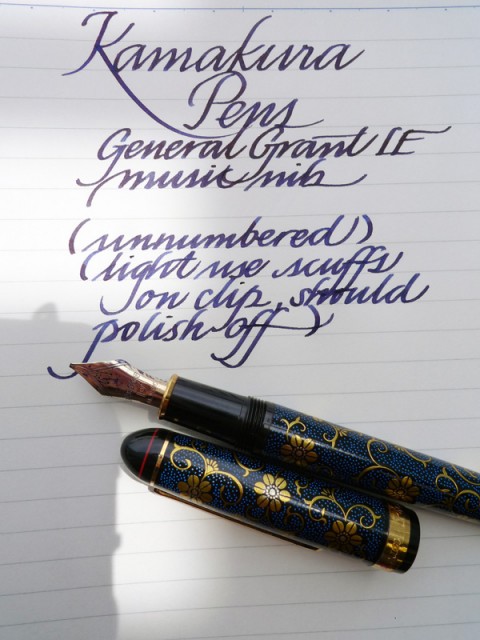 Kamakura
Pens
General Grant LE
music nib
(unnumbered)
(light use scuffs
on clip, should
polish off)